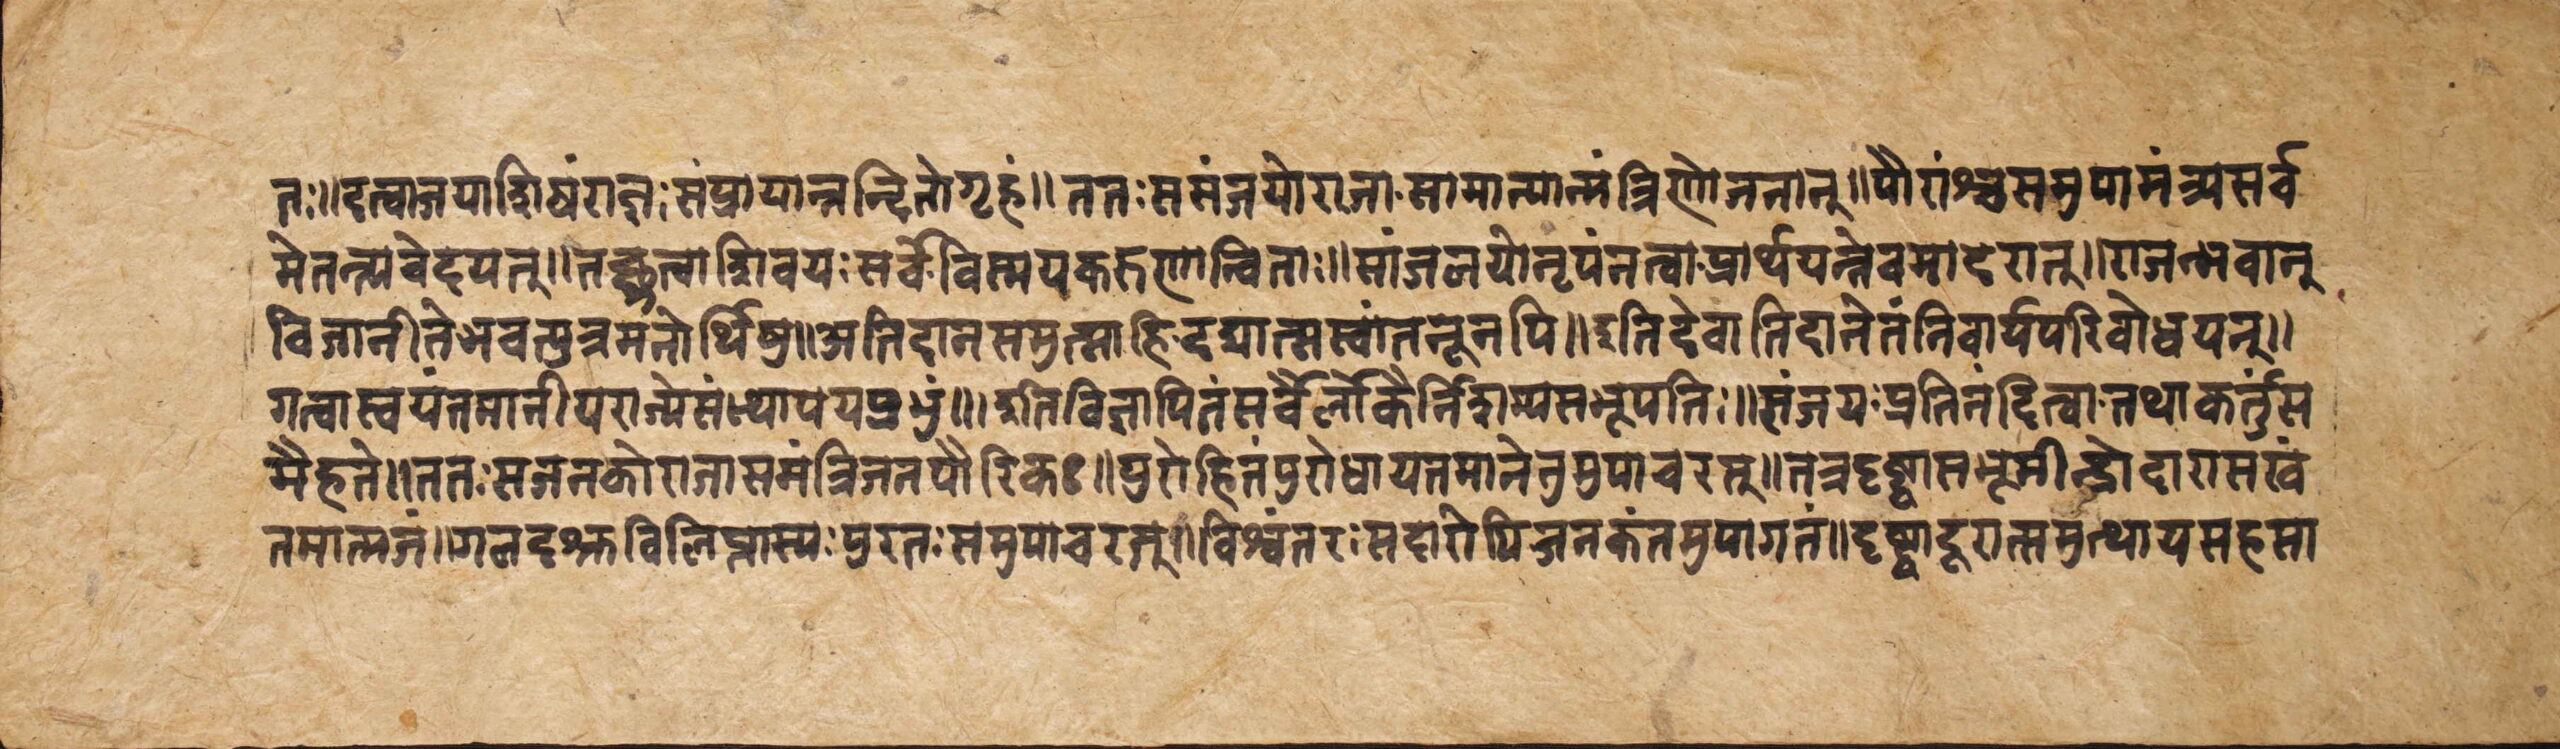 तः॥दत्वाजयाशिषंराज्ञःसंप्रायान्नन्दितोगृहं॥ ततःससंजयोराजासामात्यान्मंत्रिणोजनान्॥पौरांश्चसमुपामंत्र्यसर्व
मेतन्न्यवेदयत्॥तच्छ्रुत्वाशिवयःसर्वेविस्मयकरुणान्विताः॥सांजलयोनृपंनत्वाप्रार्थयन्नेवमादरात्॥राजन्भवान्
विजानीतेभवत्पुत्रमनोर्थिषु॥अतिदानसमुत्साहिदद्यात्सस्वांतनूनपि॥इतिदेवातिदानेतंनिवार्यपरिबोधयन्॥
गत्वास्वयंतमानीयराज्येसंस्थापयप्रभुं॥॥इतिविज्ञापितंसर्वैर्लोकैर्निशम्यसभूपतिः॥संजयःप्रतिनंदित्वातथाकर्तुंस
मैहत॥ततःसजनकोराजासमंत्रिजनपौरिकः॥पुरोहितंपुरोधायतमानेतुमुपाचरत्॥तत्रदृष्ट्वासभूमीन्द्रोदारासखं
तमात्मजं॥गलदश्रुविलिप्तास्यःपुरतःसमुपाचरत्॥विश्वंतरःसदारोपिजनकंतमुपागतं॥दृष्ट्वादूरात्समुत्थायसहसा